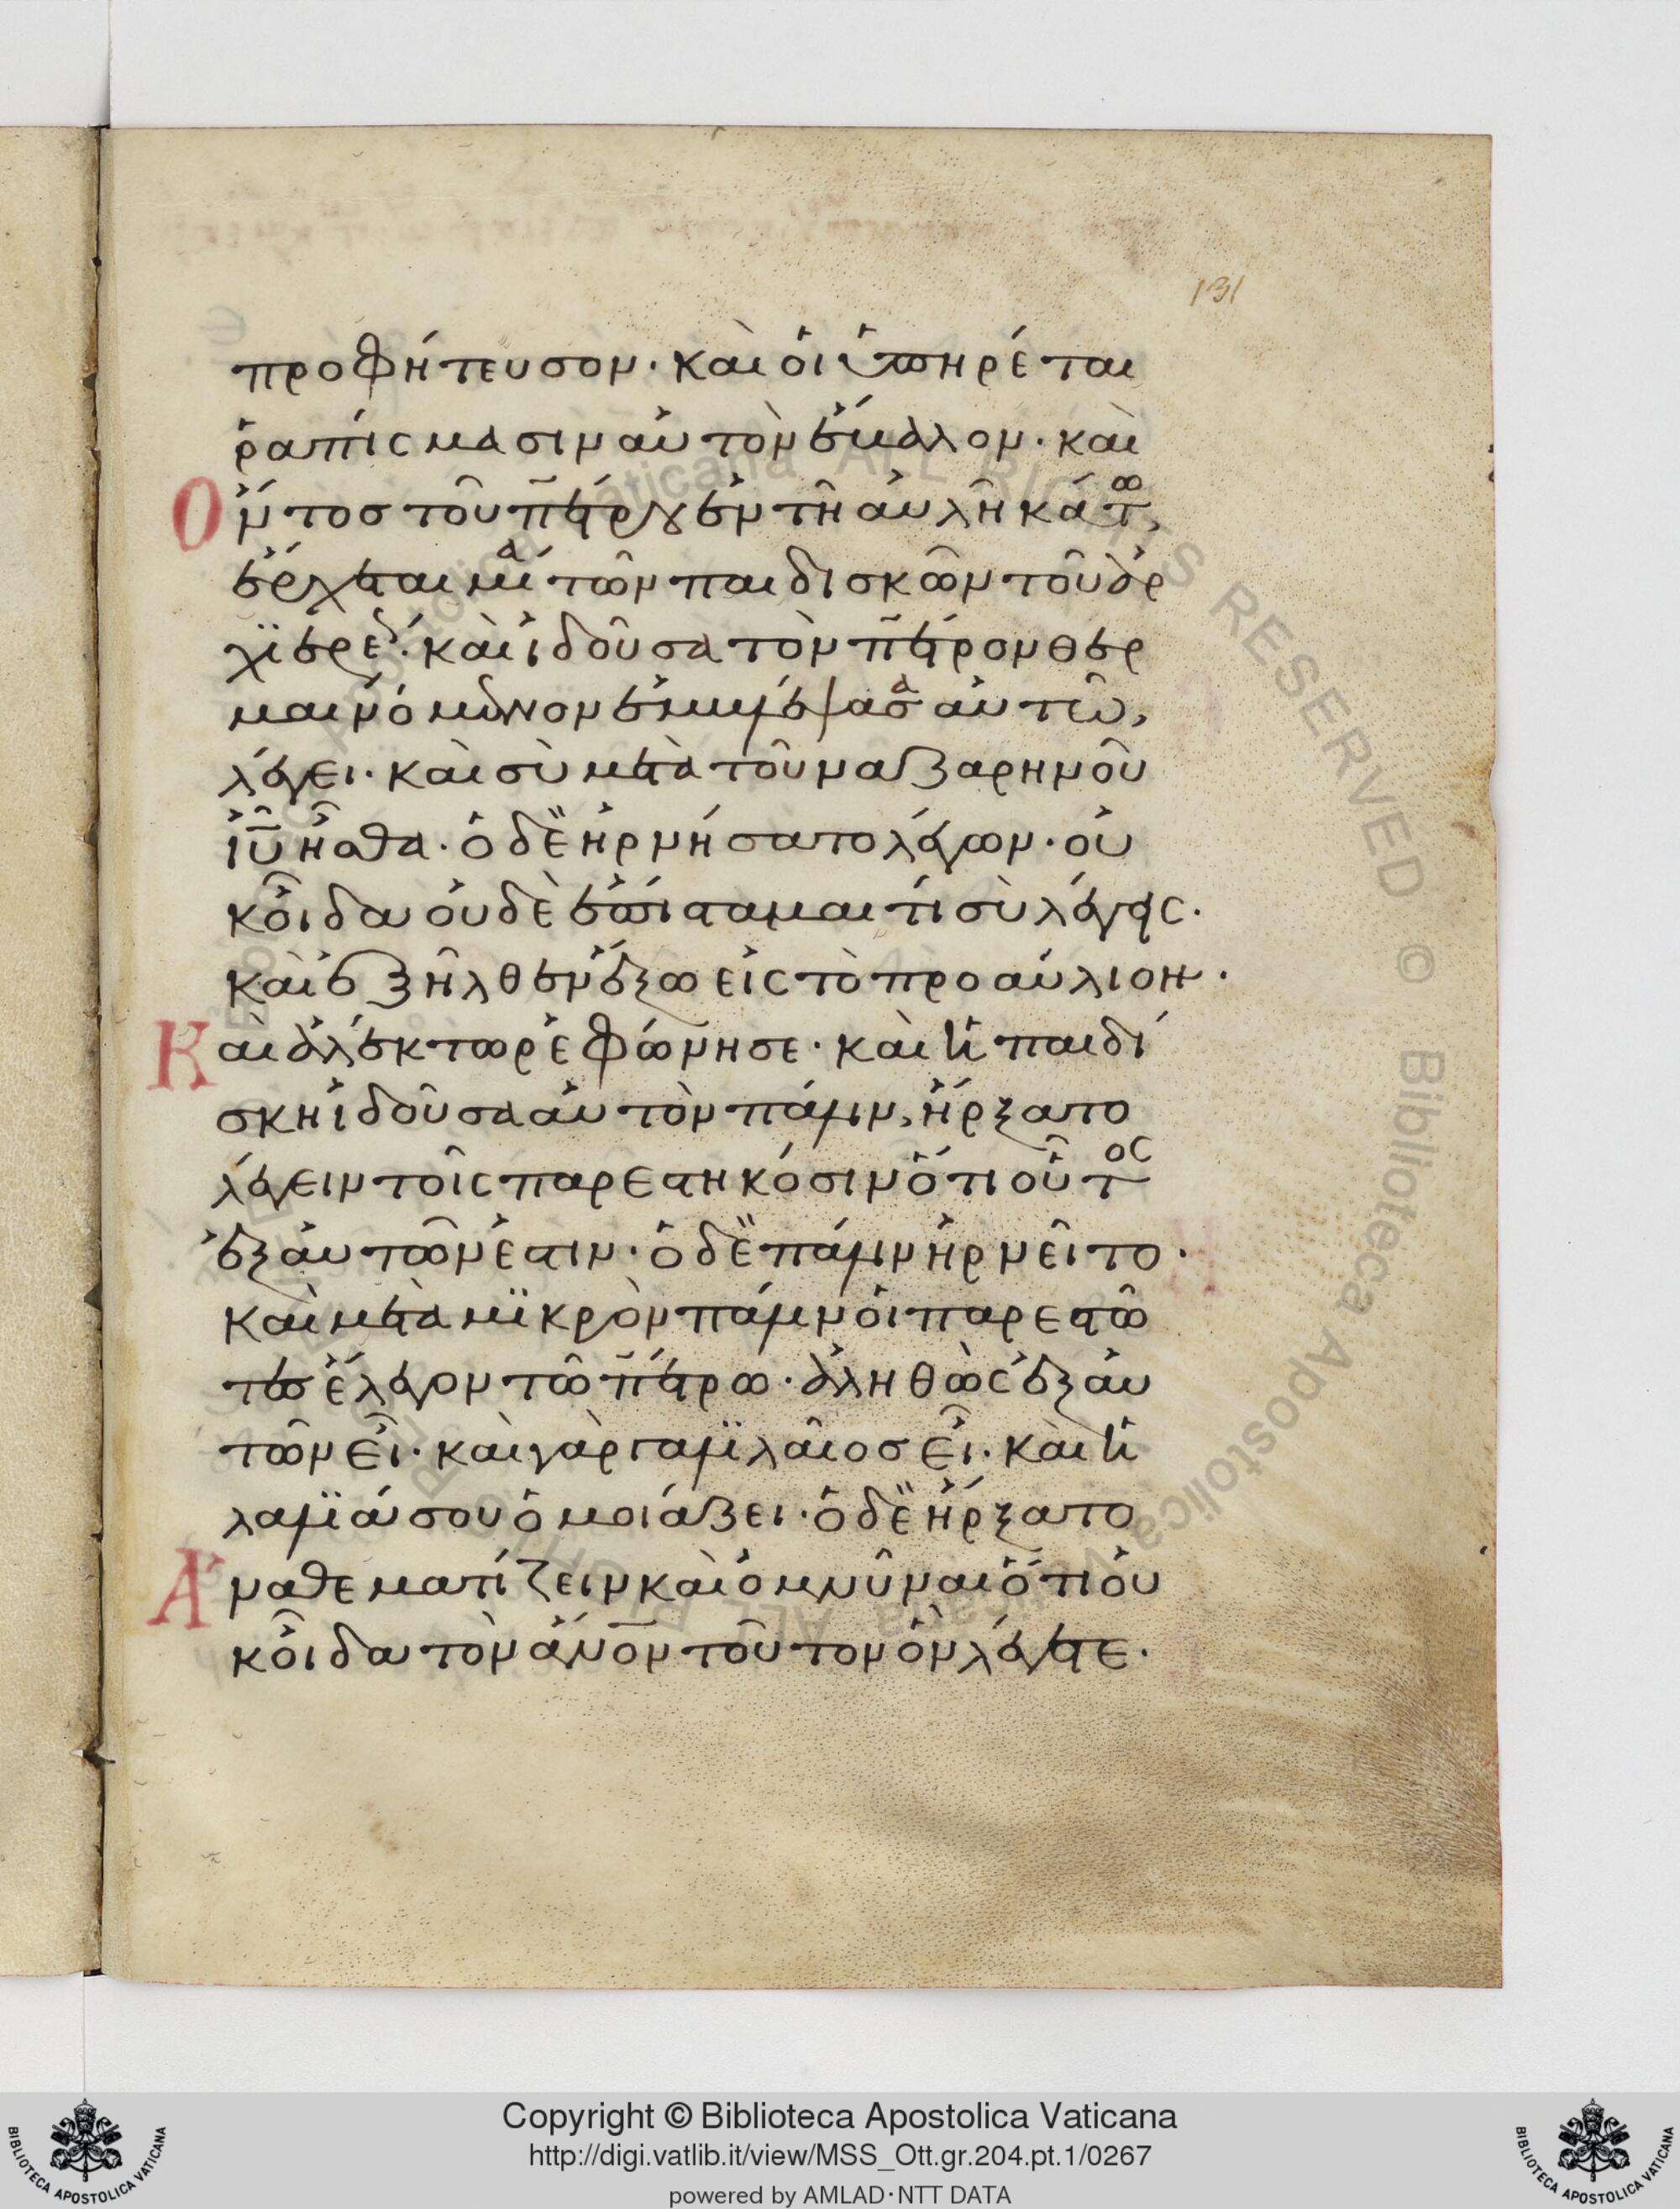 131
προφήτευσον· καὶ οἱ ὑπηρέται
ῥαπίσμασιν αὐτὸν ἔμαλον· καὶ
Ὄντος τοῦ πέτρου ἐν τῆ αὐλῆ κάτω,
ἔρχεται μία τῶν παιδισκῶν τοῦ ἀρ
χϊερέως· καὶ ἰδοῦσα τὸν πέτρον θερ
μαινόμενον ἐμμβλέψασα αὐτῶ,
λέγει· καὶ σὺ μετὰ τοῦ ναζαρηνοῦ
ἰῦ ἦσθα· ὁ δὲ ἠρνήσατο λέγων· οὐ
κ οἶδα οὐδὲ ἐπίσταμαι τί σὺ λέγεις·
καὶ ἐξῆλθεν ἔξω εἰς τὸ προαύλιον·
Καὶ ἀλέκτωρ ἐφώνησε· καὶ ἡ παιδί
σκη ἰδοῦσα αὐτὸν πάλιν, ἤρξατο
λέγειν τοῖς παρεστηκόσιν ὅτι οὗτος
ἐξ αὐτῶν ἐστιν· ὁ δὲ πάλιν ἠρνεῖτο·
καὶ μετὰ μϊκρὸν πάλιν οἱ παρεστῶ
τες ἔλεγον τῶ πέτρω· ἀληθῶς ἐξ αὐ
τῶν εἶ· καὶ γὰρ γαλϊλαῖος εἶ· καὶ ἡ
λαλϊά σου ὁμοιάζει· ὁ δὲ ἤρξατο
Ἀναθεματίζειν καὶ ὀμνῦναι ὅτι οὐ
κ οἶδα τὸν ἄνον τοῦτον ὃν λέγετε·
BIBLIOTECA APOSTOLICA VATICANA
Copyright © Biblioteca Apostolica Vaticana
http://digi.vatlib.it/view/MSS_Ott.gr.204.pt.1/0267
powered by AMLAD·NTT DATA
BIBLIOTECA APOSTOLICA VATICANA